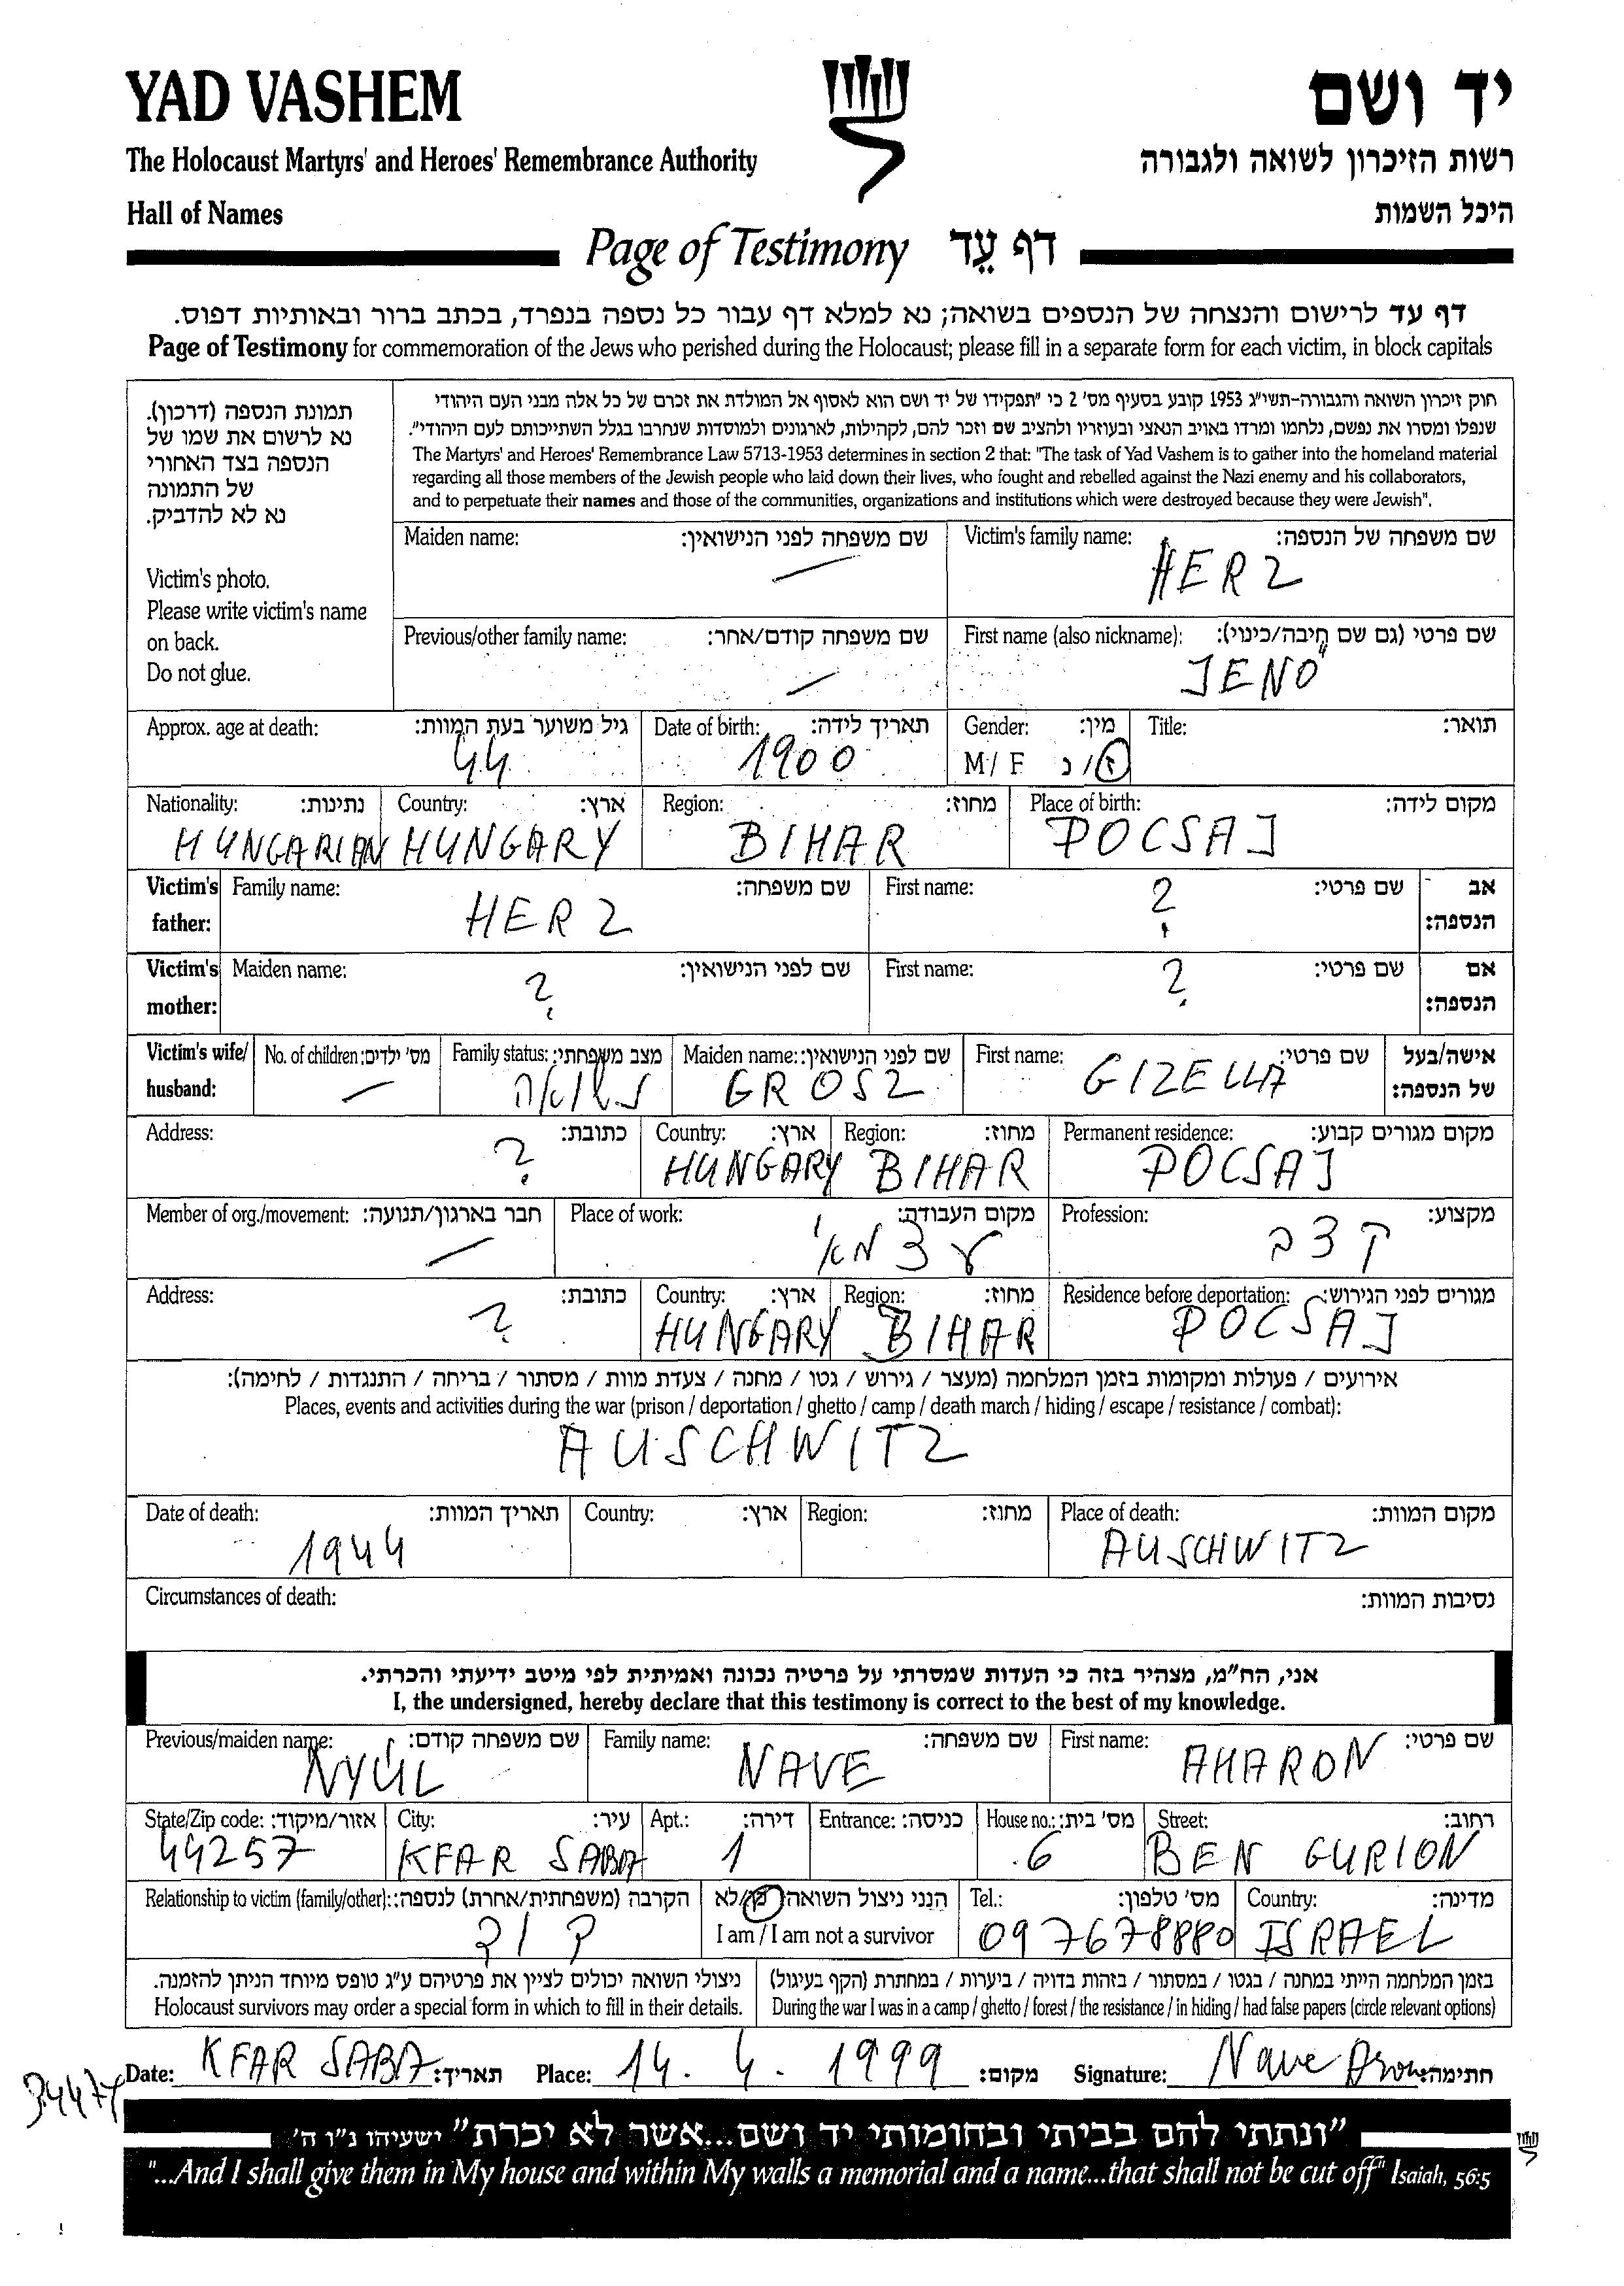 YAD VASHEM
יד ושם
The Holocaust Martyrs' and Heroes' Remembrance Authority
רשות הזיכרון לשואה ולגבורה
Hall of Names
היכל השמות
Page of Testimony דף עֵד
דף עד לרישום והנצחה של הנספים בשואה; נא למלא דף עבור כל נספה בנפרד, בכתב ברור ובאותיות דפוס.
Page of Testimony for commemoration of the Jews who perished during the Holocaust; please fill in a separate form for each victim, in block capitals
תמונת הנספה (דרכון).
נא לרשום את שמו של
הנספה בצד האחורי
של התמונה
נא לא להדביק.
Victim's photo.
Please write victim's name
on back.
Do not glue.
חוק זיכרון השואה והגבורה-תשי"ג 1953 קובע בסעיף מס' 2 כי "תפקידו של יד ושם הוא לאסוף אל המולדת את זכרם של כל אלה מבני העם היהודי
שנפלו ומסרו את נפשם, נלחמו ומרדו באויב הנאצי ובעוזריו ולהציב שם וזכר להם, לקהילות, לארגונים ולמוסדות שנחרבו בגלל השתייכותם לעם היהודי".
The Martyrs' and Heroes' Remembrance Law 5713-1953 determines in section 2 that: "The task of Yad Vashem is to gather into the homeland material
regarding all those members of the Jewish people who laid down their lives, who fought and rebelled against the Nazi enemy and his collaborators,
and to perpetuate their names and those of the communities, organizations and institutions which were destroyed because they were Jewish".
Maiden name: שם משפחה לפני הנישואין:
Victim's family name: שם משפחה של הנספה:
HERZ
Previous/other family name: שם משפחה קודם/אחר:
First name (also nickname): שם פרטי (גם שם חיבה/כינוי):
JENŐ
Approx. age at death: גיל משוער בעת המוות: Date of birth: תאריך לידה: Gender: מין: Title: תואר:
44 1900 M/ F ז/נ
Nationality: נתינות: Country: ארץ: Region: מחוז: Place of birth: מקום לידה:
HUNGARIAN HUNGARY BIHAR POCSAJ
Victim's father: Family name: שם משפחה: First name: שם פרטי: אב הנספה:
HERZ ?
Victim's mother: Maiden name: שם לפני הנישואין: First name: שם פרטי: אם הנספה:
? ?
Victim's wife/ husband: No. of children: מס' ילדים: Family status: מצב משפחתי: Maiden name: שם לפני הנישואין: First name: שם פרטי: אישה/בעל של הנספה:
נשואה GROSZ GIZELLA
Address: כתובת: Country: ארץ: Region: מחוז: Permanent residence: מקום מגורים קבוע:
? HUNGARY BIHAR POCSAJ
Member of org./movement: חבר בארגון/תנועה: Place of work: מקום העבודה: Profession: מקצוע:
עצמאי קצב
Address: כתובת: Country: ארץ: Region: מחוז: Residence before deportation: מגורים לפני הגירוש:
? HUNGARY BIHAR POCSAJ
אירועים / פעולות ומקומות בזמן המלחמה (מעצר / גירוש / גטו / מחנה / צעדת מוות / מסתור / בריחה / התנגדות / לחימה):
Places, events and activities during the war (prison / deportation / ghetto / camp / death march / hiding / escape / resistance / combat):
AUSCHWITZ
Date of death: תאריך המוות: Country: ארץ: Region: מחוז: Place of death: מקום המוות:
1944 AUSCHWITZ
Circumstances of death: נסיבות המוות:
אני, הח"מ, מצהיר בזה כי העדות שמסרתי על פרטיה נכונה ואמיתית לפי מיטב ידיעתי והכרתי.
I, the undersigned, hereby declare that this testimony is correct to the best of my knowledge.
Previous/maiden name: שם משפחה קודם: Family name: שם משפחה: First name: שם פרטי:
NYÚL NAVE AHARON
State/Zip code: אזור/מיקוד: City: עיר: Apt.: דירה: Entrance: כניסה: House no.: מס' בית: Street: רחוב:
44257 KFAR SABA 1 6 BEN GURION
Relationship to victim (family/other): הקרבה (משפחתית/אחרת) לנספה: הנני ניצול השואה: כן/לא Tel.: מס' טלפון: Country: מדינה:
I am / I am not a survivor
097678880 ISRAEL
ניצולי השואה יכולים לציין את פרטיהם ע"ג טופס מיוחד הניתן להזמנה.
Holocaust survivors may order a special form in which to fill in their details.
בזמן המלחמה הייתי במחנה / בגטו / במסתור / בזהות בדויה / ביערות / במחתרת (הקף בעיגול)
During the war I was in a camp / ghetto / forest / the resistance / in hiding / had false papers (circle relevant options)
Date: KFAR SABA תאריך: Place: 14. 4. 1999 מקום: Signature: Nave חתימה:
"ונתתי להם בביתי ובחומותי יד ושם...אשר לא יכרת" ישעיהו נ"ו ה'
"...And I shall give them in My house and within My walls a memorial and a name...that shall not be cut off" Isaiah, 56:5